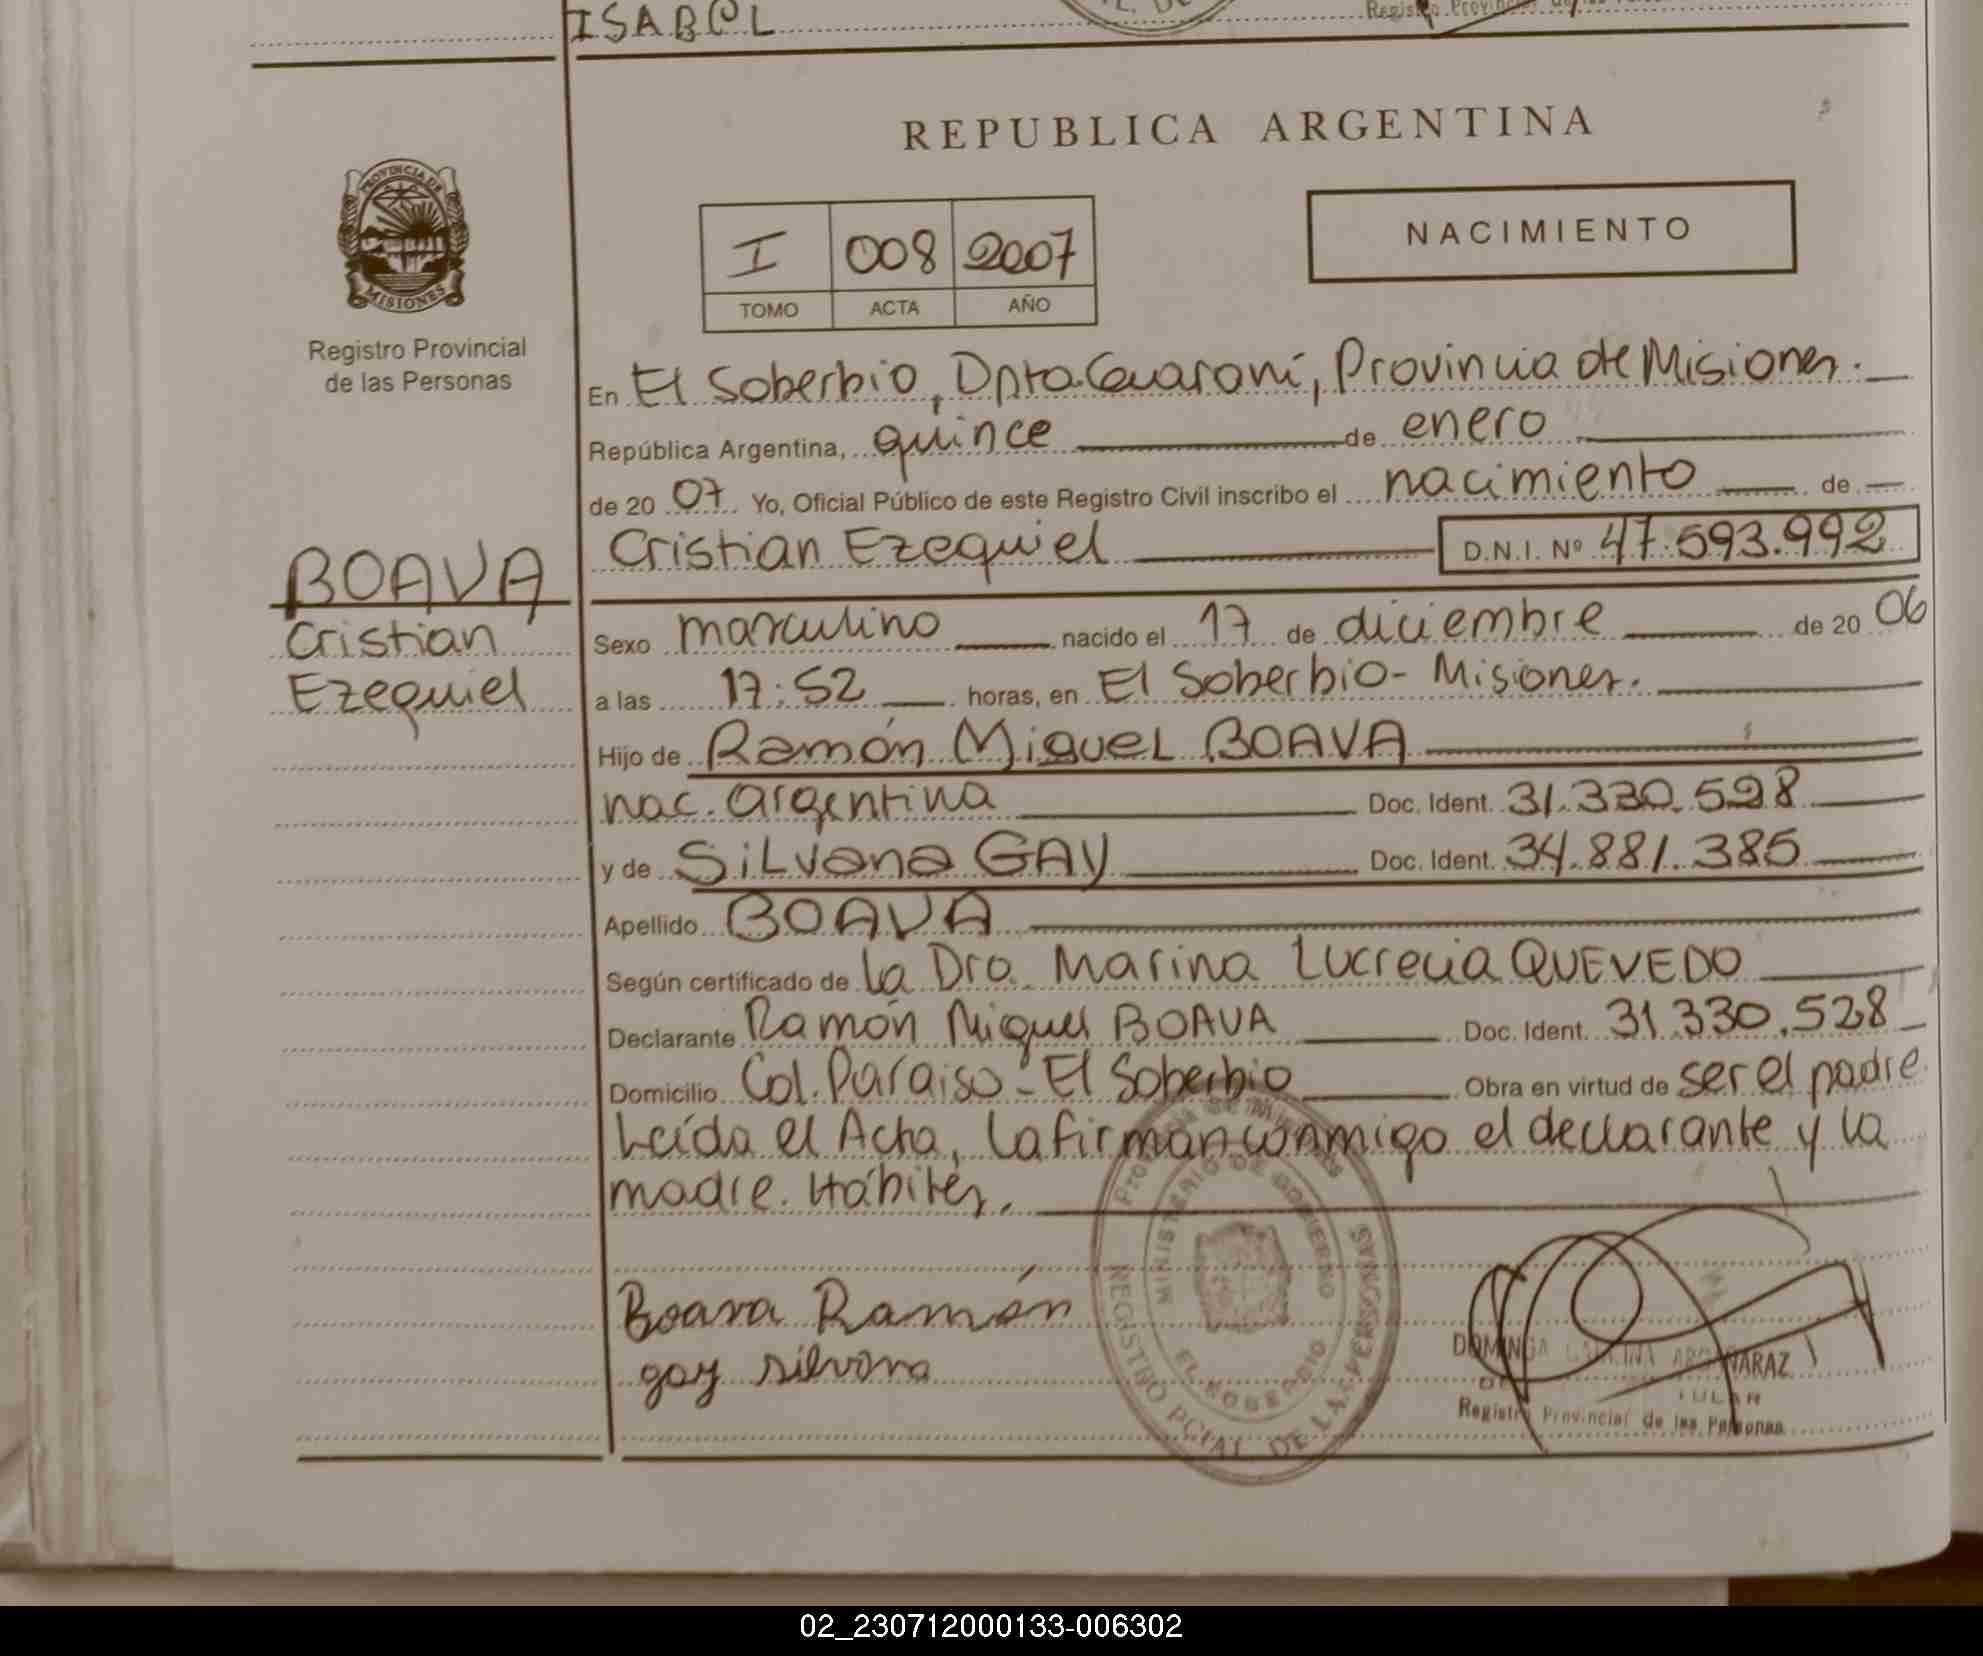 ISABEL
REPUBLICA ARGENTINA
PROVINCIA DE
MISIONES
Registro Provincial
de las Personas
I 008 2007
TOMO ACTA AÑO
NACIMIENTO
En El Soberbio, Dpto. Guaraní, Provincia de Misiones.
República Argentina, quince de enero
de 20 07 Yo, Oficial Público de este Registro Civil inscribo el nacimiento de
Cristian Ezequiel D.N.I. Nº 47.593.992
BOAVA
Cristian
Ezequiel
Sexo masculino nacido el 17 de diciembre de 20 06
a las 17:52 horas, en El Soberbio - Misiones.
Hijo de Ramón Miguel BOAVA
nac. argentina Doc. Ident. 31.330.528
y de Silvana GAY Doc. Ident. 34.881.385
Apellido BOAVA
Según certificado de la Dra. Marina Lucrecia QUEVEDO
Declarante Ramón Miguel BOAVA Doc. Ident. 31.330.528
Domicilio Col. Paraiso - El Soberbio Obra en virtud de ser el padre
Leída el Acta, la firman conmigo el declarante y la
madre. Hábiles.
Boava Ramón
gay silvana
MINISTERIO DE GOBIERNO
EL SOBERBIO
REGISTRO PCIAL. DE LAS PERSONAS
DOMINGA
Registro Provincial de las Personas
02_230712000133-006302